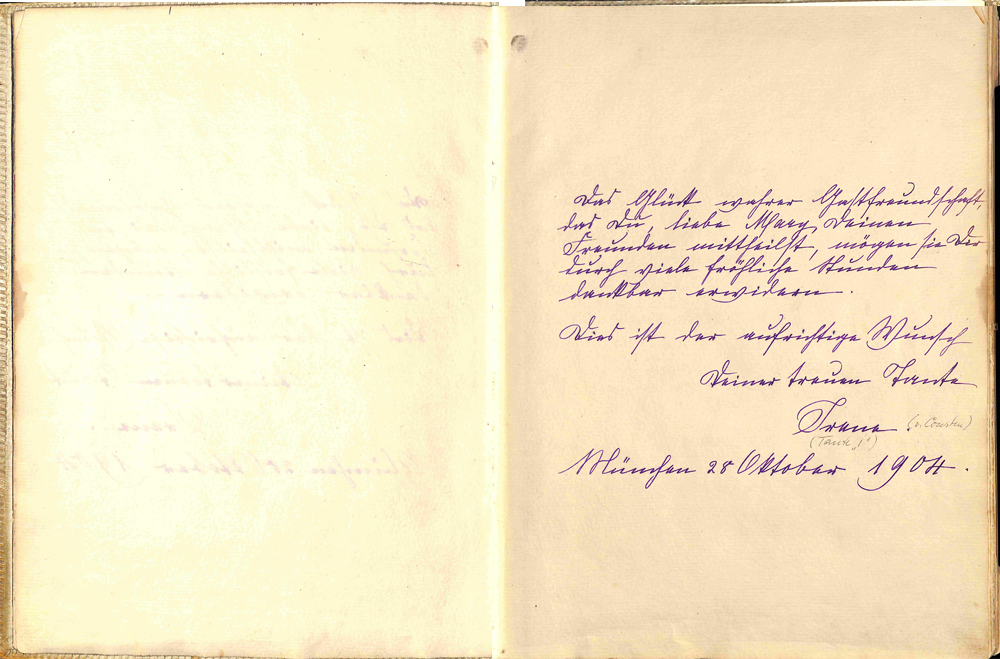 Das Glück wahrer Gastfreundschaft,
das Du, liebe Mary, Deinen
Freunden mittheilst, mögen sie Dir
durch viele fröhliche Stunden
dankbar erwidern.
Dies ist der aufrichtige Wunsch
Deiner treuen Tante
Irene.
(Tante „I“)
München 28 Oktober 1904.